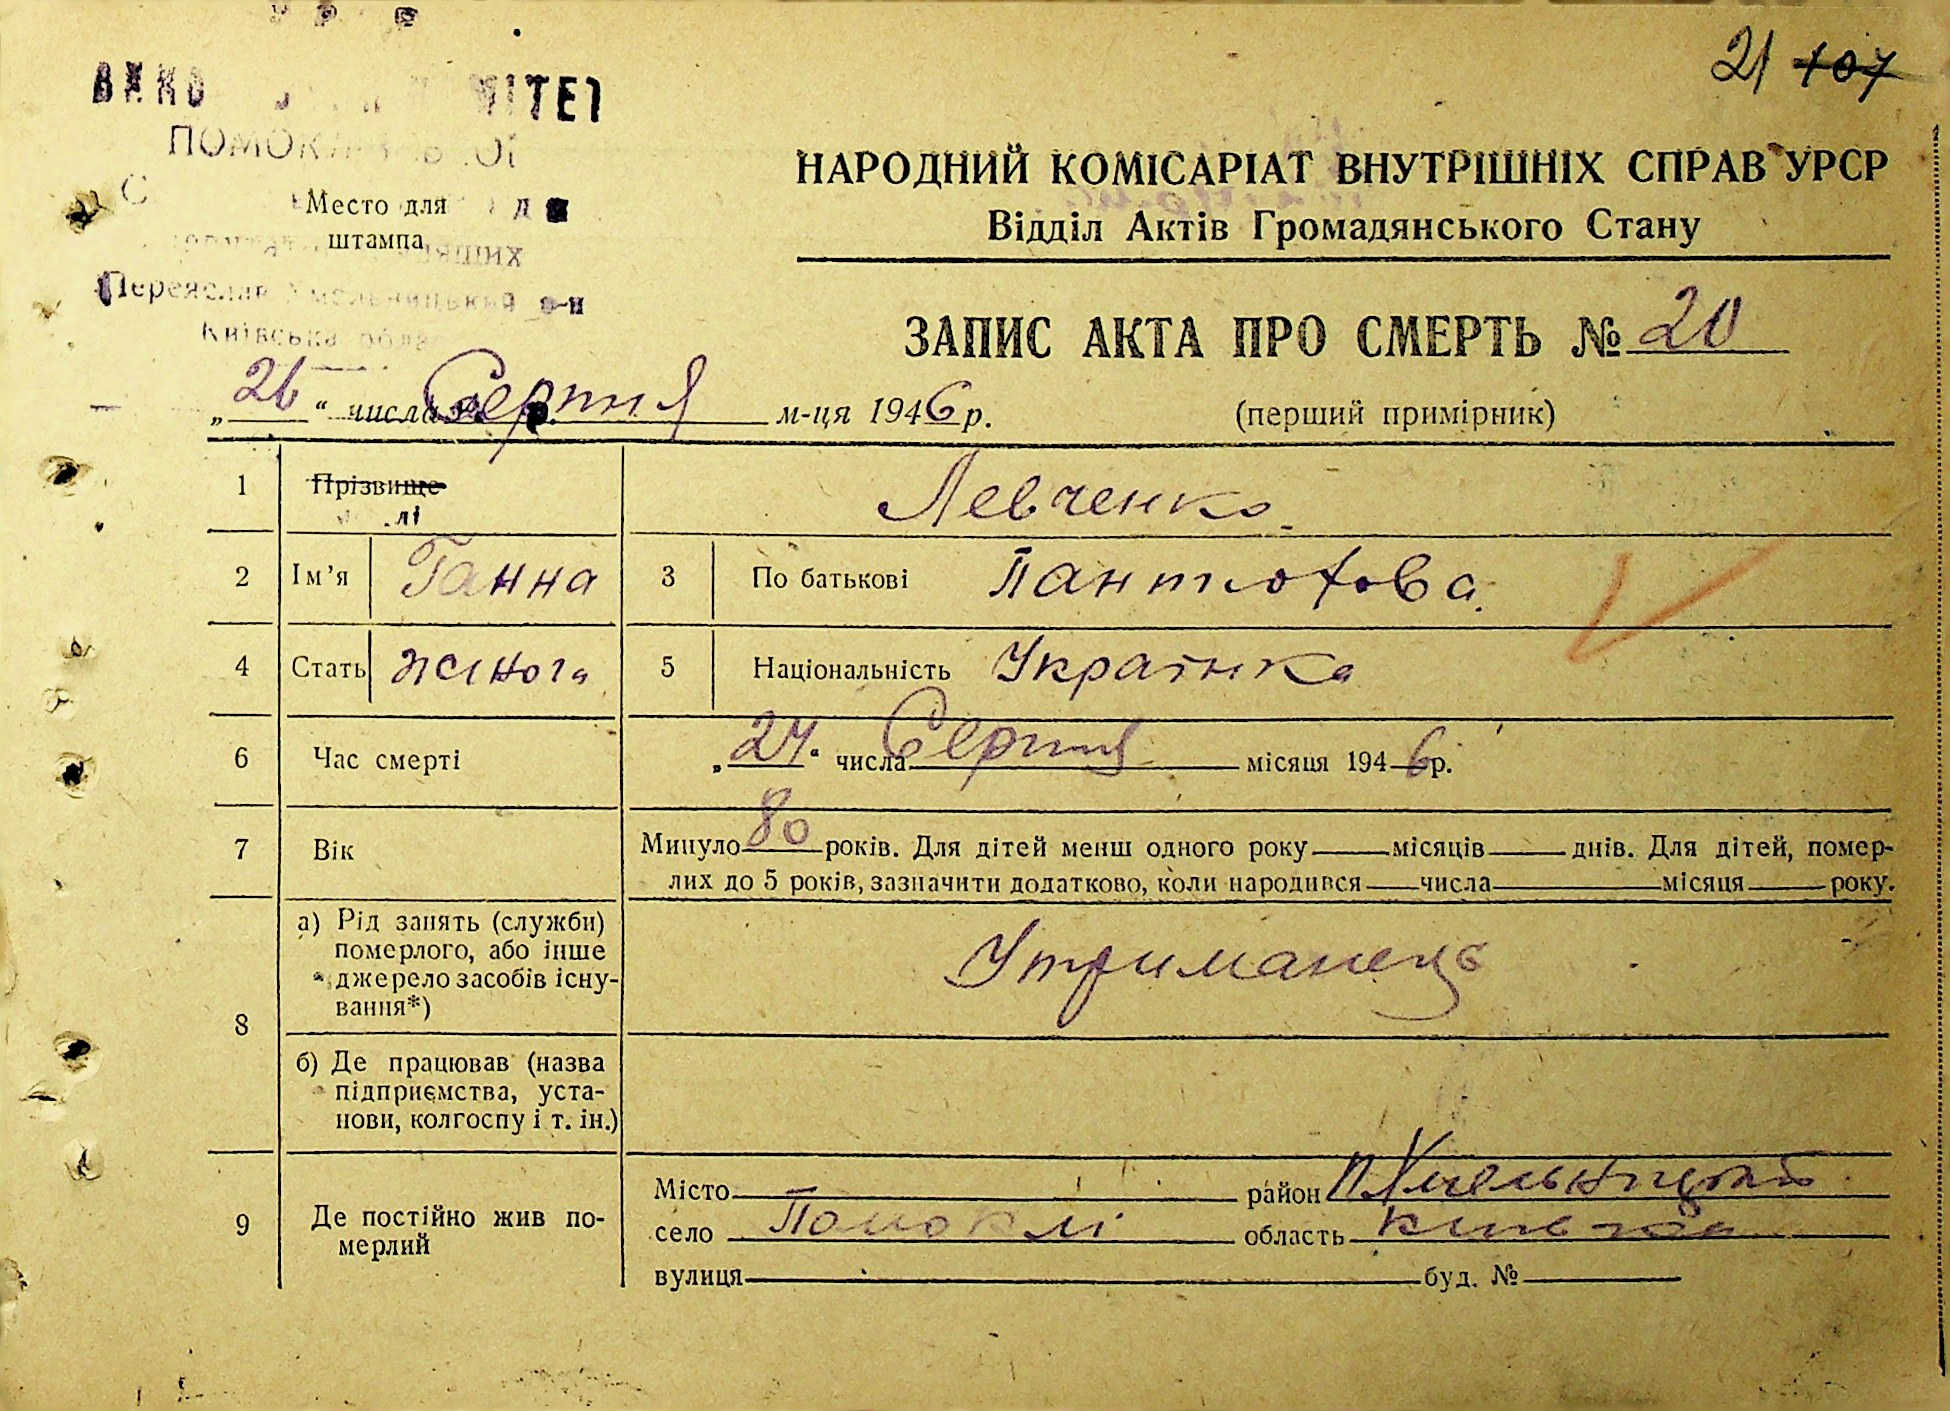 УРСР
21 107
ПОМОК
НАРОДНИЙ КОМІСАРІАТ ВНУТРІШНІХ СПРАВ УРСР
Место для
штампа
Відділ Актів Громадянського Стану
Переяслав Хмельницький р-н
Київська
ЗАПИС АКТА ПРО СМЕРТЬ № 20
„26“ числа Серпня м-ця 1946 р.
(перший примірник)
1 Прізвище Левченко
2 Ім'я Ганна 3 По батькові
4 Стать жіноча 5 Національність Українка
6 Час смерті „24“ числа Серпня місяця 1946 р.
7 Вік Минуло 80 років. Для дітей менш одного року місяців днів. Для дітей, помер-
лих до 5 років, зазначити додатково, коли народився числа місяця року.
8 а) Рід занять (служби)
померлого, або інше
джерело засобів існу-
вання*)
Утриманець
б) Де працював (назва
підприємства, уста-
нови, колгоспу і т. ін.)
9 Де постійно жив по-
мерлий
Місто район П Хмельницький
село Помоклі область Київська
вулиця буд. №